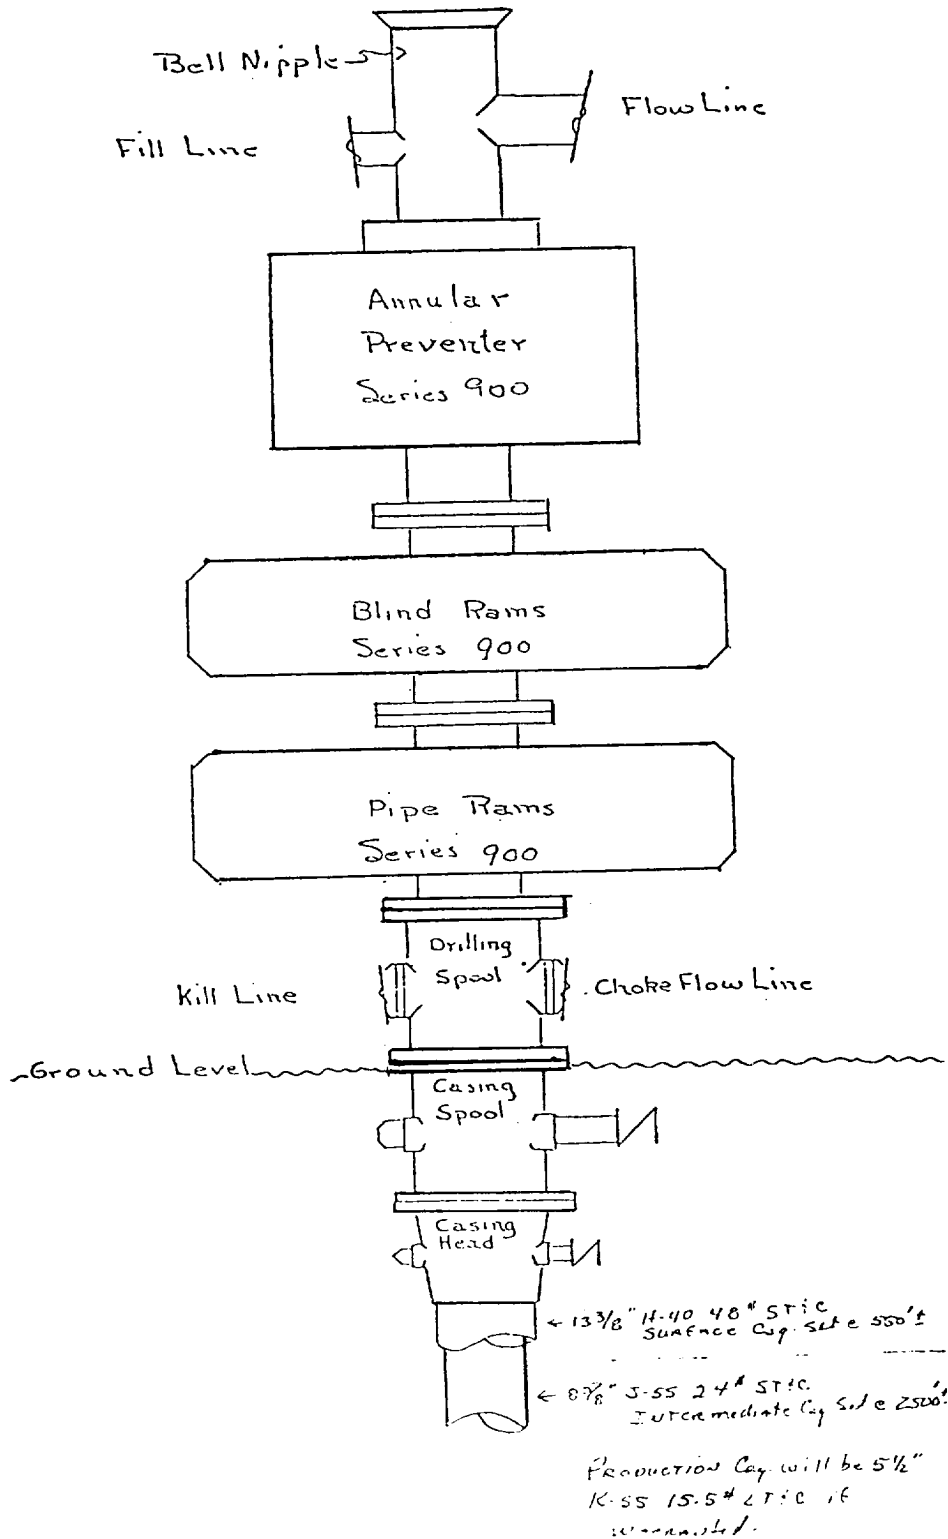 Bell Nipple
Flow Line
Fill Line
Annular
Preventer
Series 900
Blind Rams
Series 900
Pipe Rams
Series 900
Drilling
Spool
Kill Line
Choke Flow Line
Ground Level
Casing
Spool
Casing
Head
← 13 3/8" H-40 48# ST&C
SURFACE Csg. Set @ 550'±
← 8 5/8" J-55 24# ST&C
Intermediate Csg Set @ 2500'±
PRODUCTION Csg. will be 5½"
K-55 15.5# LT&C if
warranted.